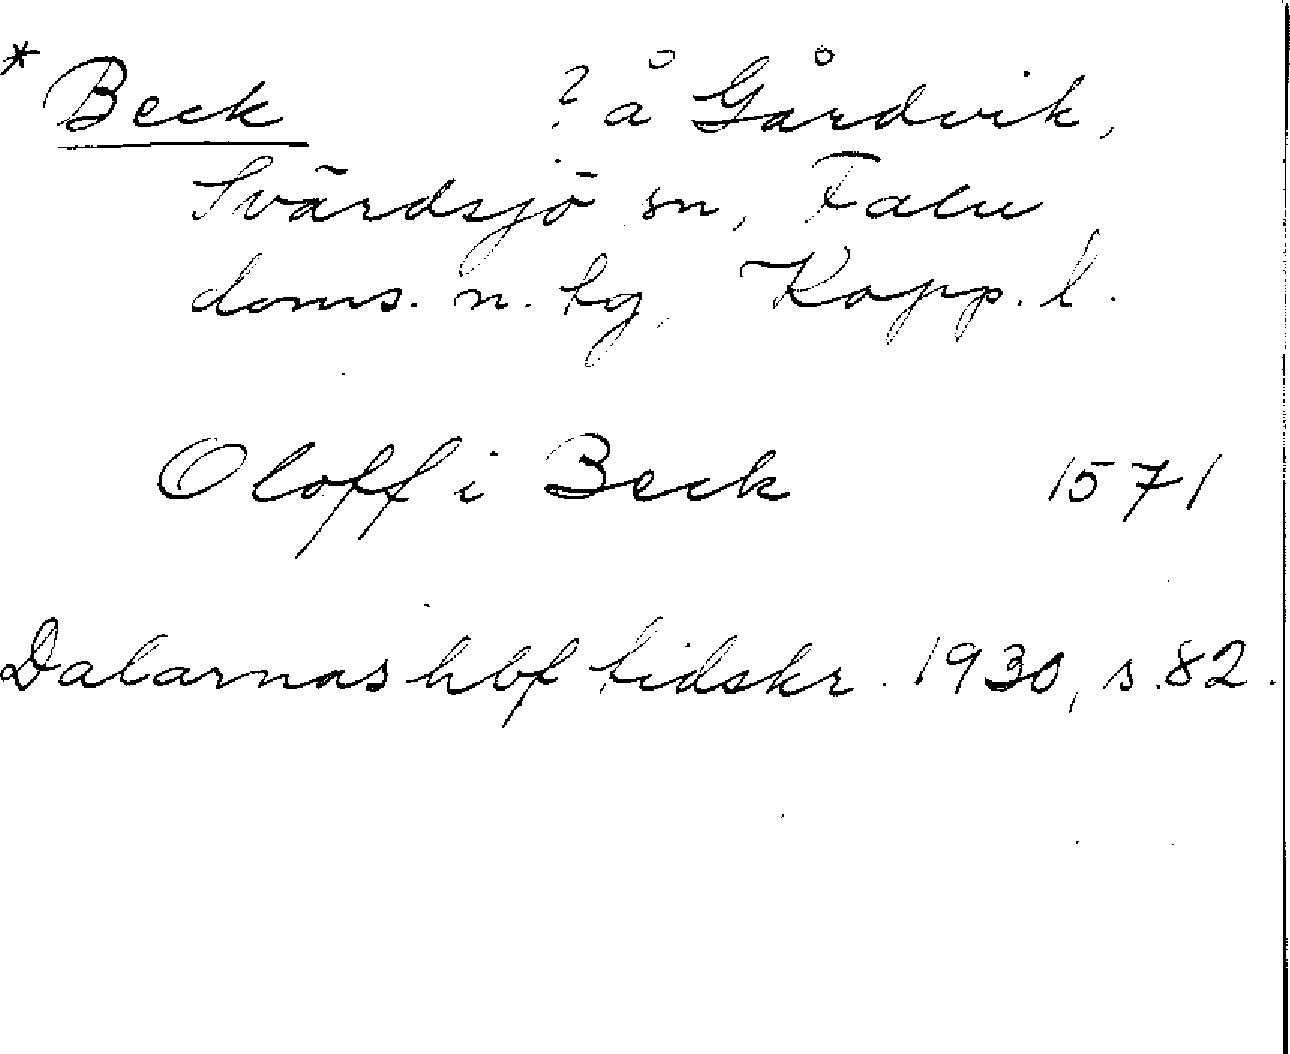 * Beck ? å Gårdvik,
Svärdsjö sn, Falu
doms. n. tg, Kopp. l.
Oloff i Beck 1571
Dalarnas hbf tidskr. 1930, s. 82.